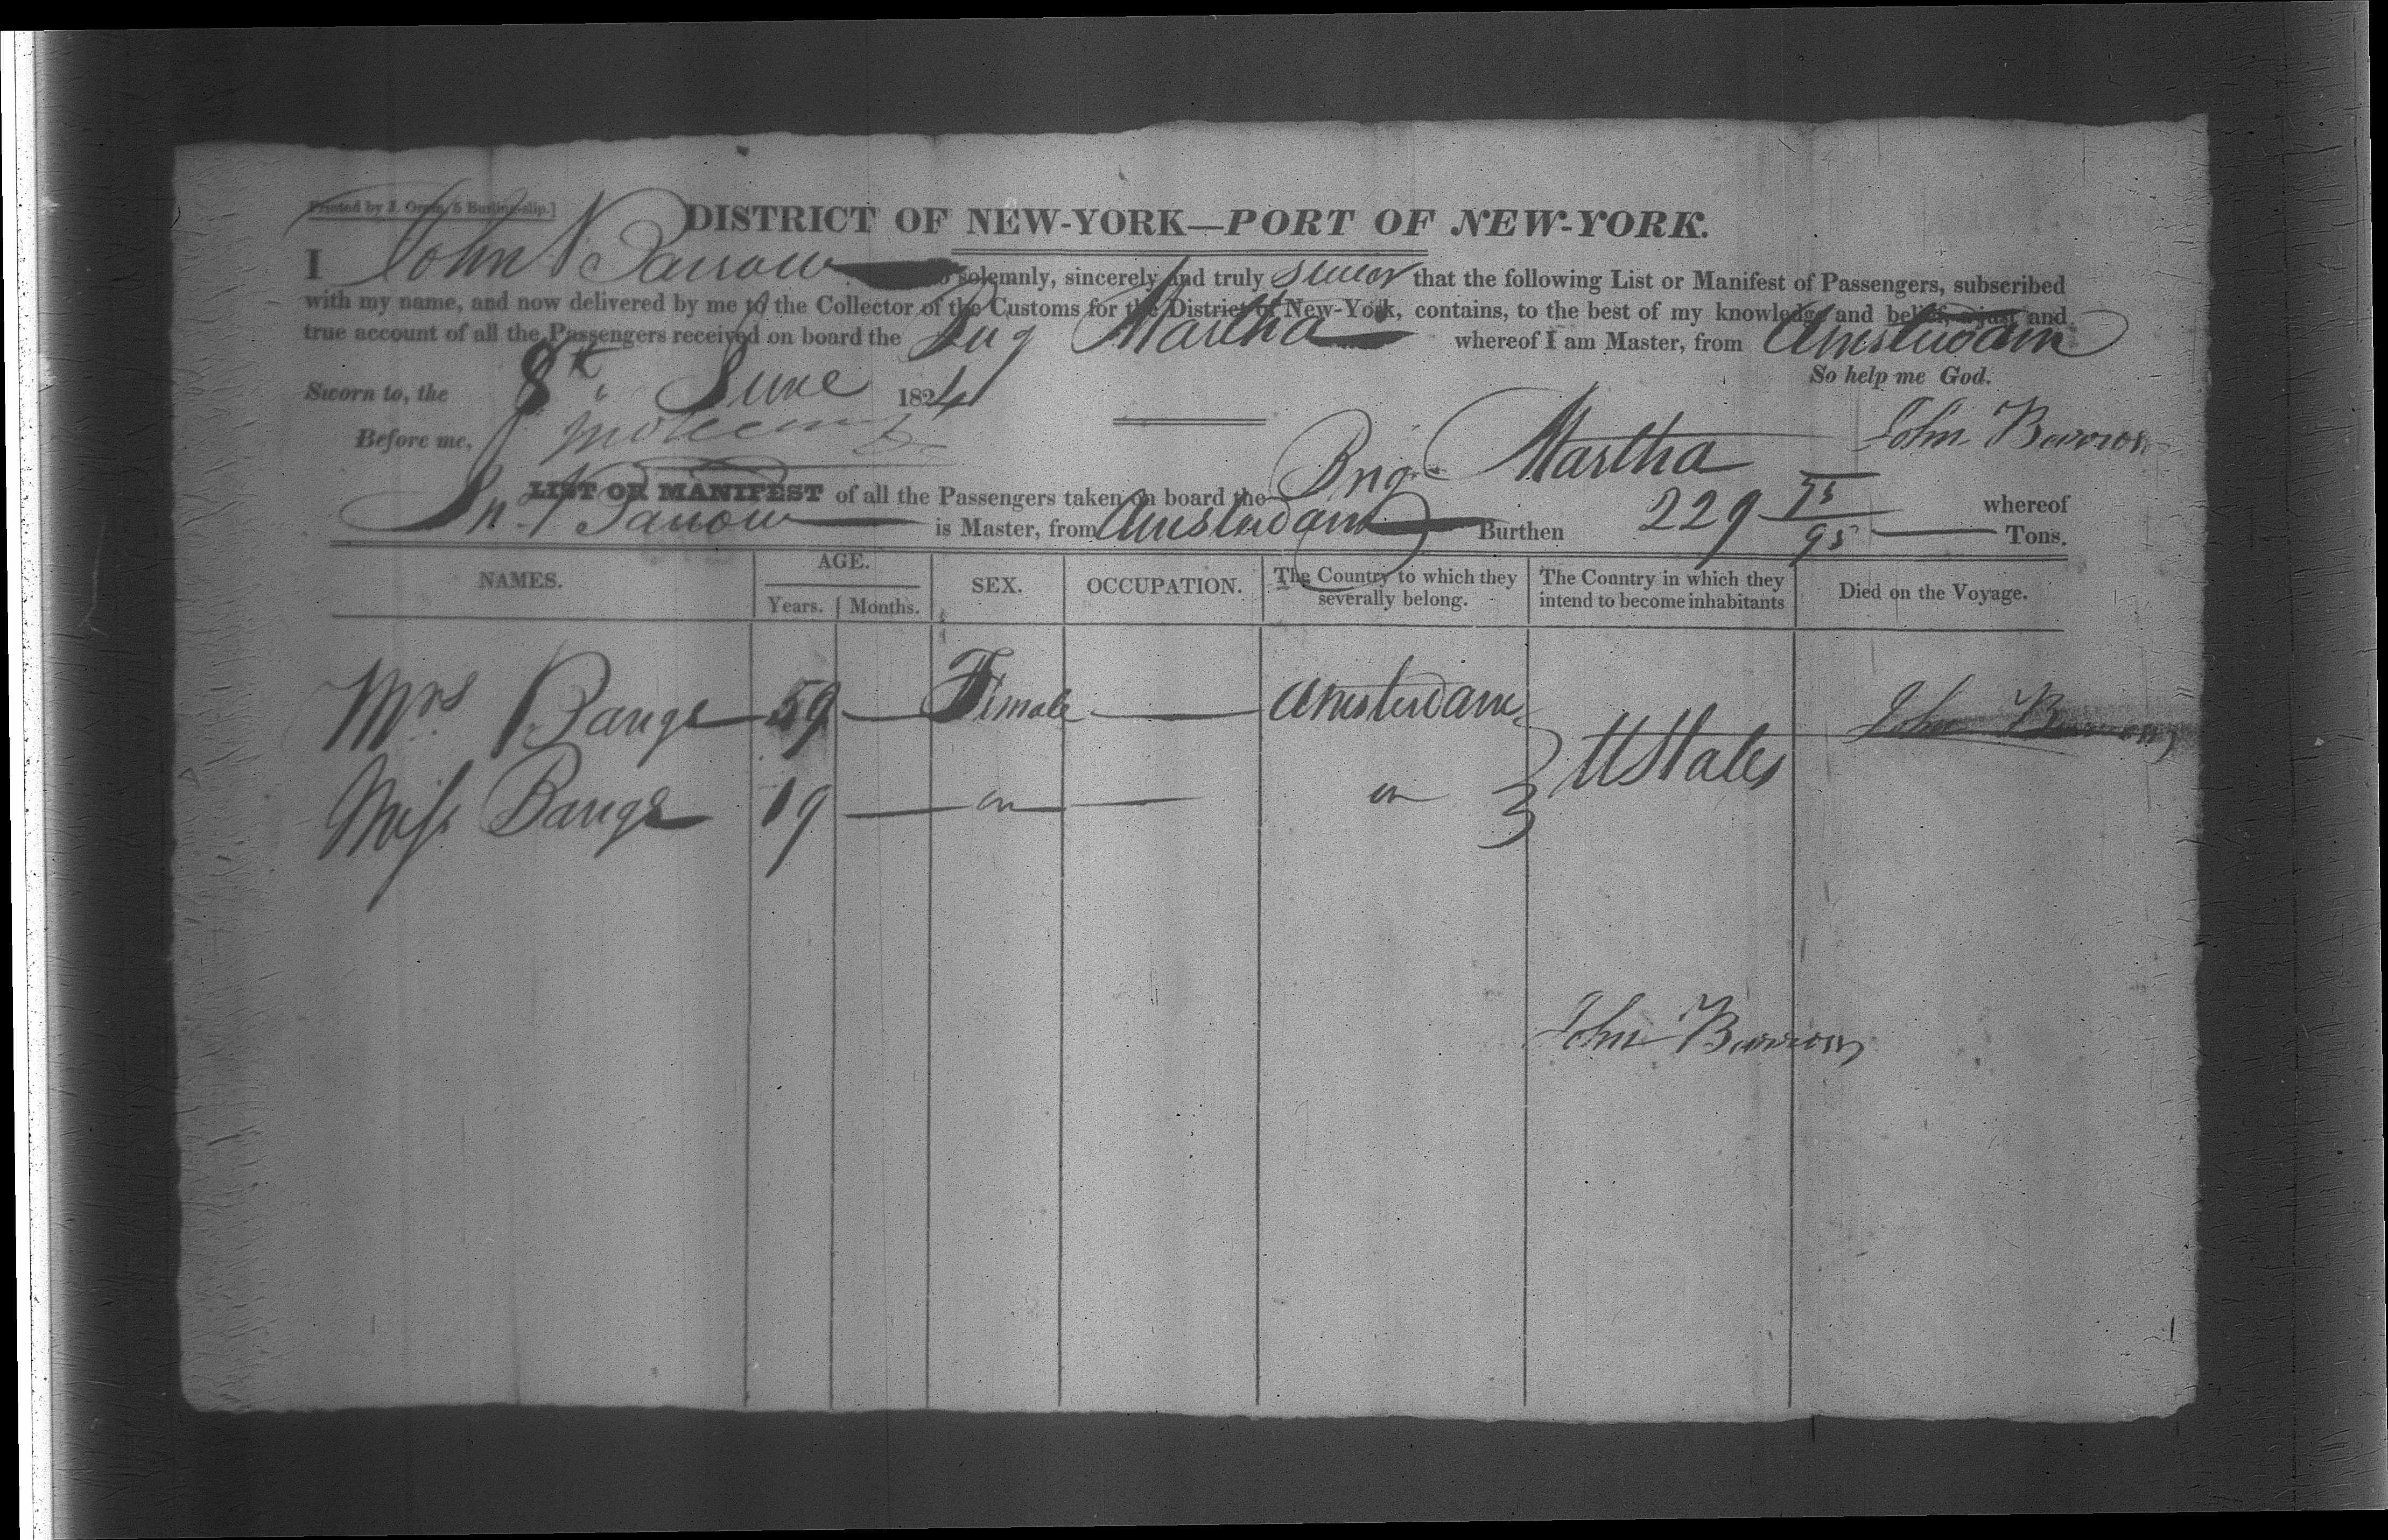 Printed by J. Oram, 5 Burling-slip.]
DISTRICT OF NEW-YORK—PORT OF NEW-YORK.
I John Barrow do solemnly, sincerely and truly swear that the following List or Manifest of Passengers, subscribed
with my name, and now delivered by me to the Collector of the Customs for the District of New-York, contains, to the best of my knowledge and belief, a just and
true account of all the Passengers received on board the Brig Martha whereof I am Master, from Amsterdam
So help me God.
Sworn to, the 8th June 1824
Before me,
John Barrow
LIST OR MANIFEST of all the Passengers taken on board the Brig Martha whereof
Jn. Barrow is Master, from Amsterdam Burthen 229 75/95 Tons.
NAMES. AGE. SEX. OCCUPATION. The Country to which they severally belong. The Country in which they intend to become inhabitants Died on the Voyage.
Years. Months.
Mrs Bange 59 — Female — Amsterdam
U States
John Barrow
Miss Bange 19 —
John Barrow